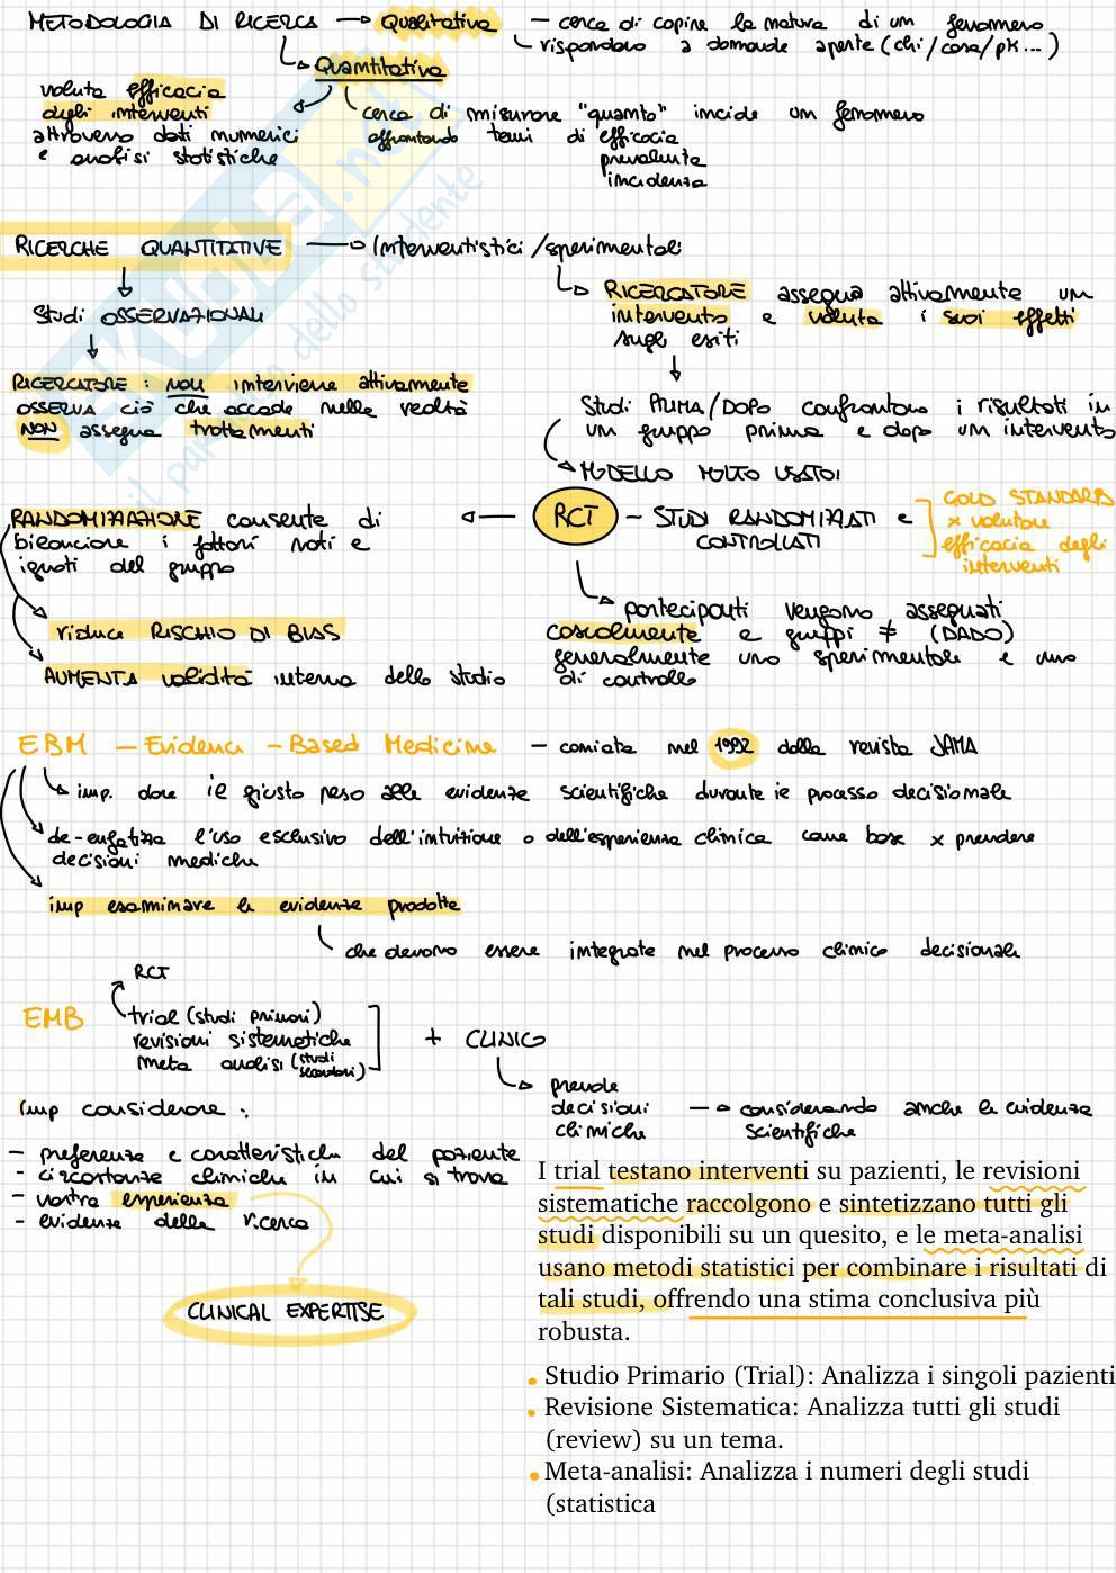 METODOLOGIA DI RICERCA → Qualitativa – cerca di capire la natura di un fenomeno
rispondono a domande aperte (chi/cosa/pk...)
Quantitativa
valuta efficacia
degli interventi
attraverso dati numerici
e analisi statistiche
cerca di misurare "quanto" incide un fenomeno
affrontando temi di efficacia
prevalente
incidenza
RICERCHE QUANTITATIVE → Interventistici/sperimentali
Studi OSSERVAZIONALI
RICERCATORE: NON interviene attivamente
OSSERVA ciò che accade nella realtà
NON assegna trattamenti
RICERCATORE assegna attivamente un
intervento e valuta i suoi effetti
sugli esiti
Studi PRIMA/DOPO confrontano i risultati in
un gruppo prima e dopo un intervento
MODELLO MOLTO USATO!
RCT – STUDI RANDOMIZZATI e
CONTROLLATI
GOLD STANDARD
x valutare
efficacia degli
interventi
RANDOMIZZAZIONE consente di
bilanciare i fattori noti e
ignoti del gruppo
riduce RISCHIO DI BIAS
AUMENTA validità interna dello studio
partecipanti vengono assegnati
casualmente a gruppi ≠ (DADO)
generalmente uno sperimentale e uno
di controllo
EBM – Evidence – Based Medicine – coniata nel 1992 dalla rivista JAMA
imp. dare il giusto peso alle evidenze scientifiche durante il processo decisionale
de-enfatizza l'uso esclusivo dell'intuizione o dell'esperienza clinica come base x prendere
decisioni mediche
imp esaminare le evidenze prodotte
che devono essere integrate nel processo clinico decisionale
RCT
EMB
trial (studi primari)
revisioni sistematiche
meta analisi (studi secondari)
+ CLINICO
prende
decisioni
cliniche
→ considerando anche le evidenze
scientifiche
Imp considerare:
– preferenze e caratteristiche del paziente
– circostanze cliniche in cui si trova
– vostra esperienza
– evidenze della ricerca
CLINICAL EXPERTISE
I trial testano interventi su pazienti, le revisioni
sistematiche raccolgono e sintetizzano tutti gli
studi disponibili su un quesito, e le meta-analisi
usano metodi statistici per combinare i risultati di
tali studi, offrendo una stima conclusiva più
robusta.
• Studio Primario (Trial): Analizza i singoli pazienti
• Revisione Sistematica: Analizza tutti gli studi
(review) su un tema.
• Meta-analisi: Analizza i numeri degli studi
(statistica